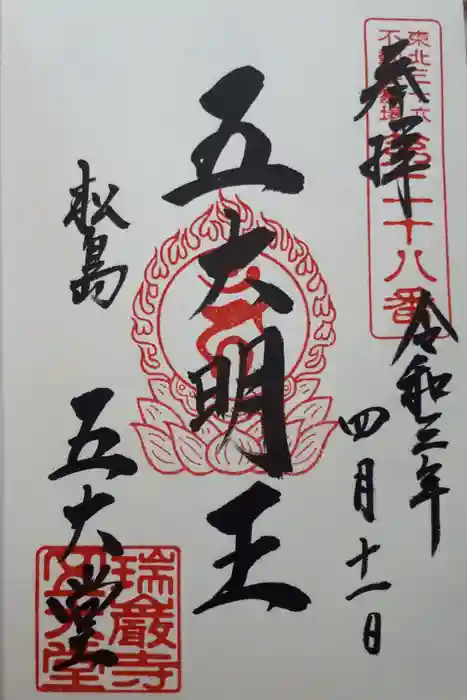 奉拝
東北三十六
不動尊霊場
第二十八番
令和三年
四月十一日
五大明王
松島
五大堂
瑞巌寺
五大堂